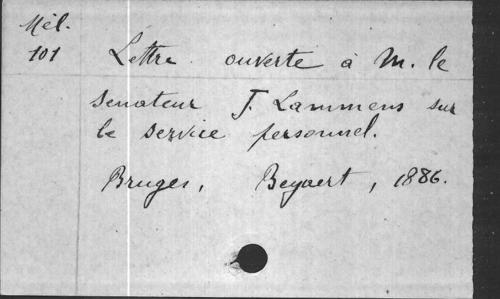 Mél.
101
Lettre ouverte à M. le
senateur J. Lammens sur
le service personnel.
Bruges, Beyaert, 1886.